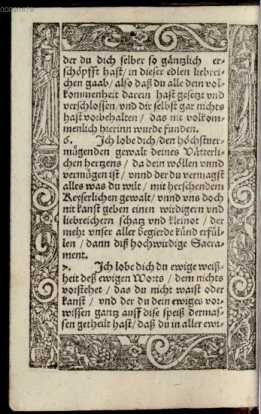 der du dich selber so gänzlich er-
schöpfft hast/ in dieser edlen liebrei-
chen gaab/ also daß du alle dein vol-
kommenheit darein hast gesetzt vnd
verschlossen, vnd dir selbst gar nichts
hast vorbehalten / das nit volkom-
menlich hierinn wurde funden.
6. Ich lobe dich/den höchstuer-
mügenden gewalt deines Vätterli-
chen hertzens / da dein wöllen vnnd
vermügen ist / vnnd der du vermagst
alles was du wilt / mit herschendem
Keyserlichen gewalt/ vnnd vns doch
nit kanst geben einen wirdigern vnd
liebreichern schatz vnd kleinot / der
mehr vnser aller begierde künd erfül-
len / dann diß hochwirdige Sacra-
ment.
7. Ich lobe dich du ewige weiß-
heit deß ewigen Worts / dem nichts
vorstehet / das du nicht waist oder
kanst / vnd der du dein ewiges vor-
wissen gang auff dise speiß dermas-
sen getheilt hast/ daß du in aller ewi-